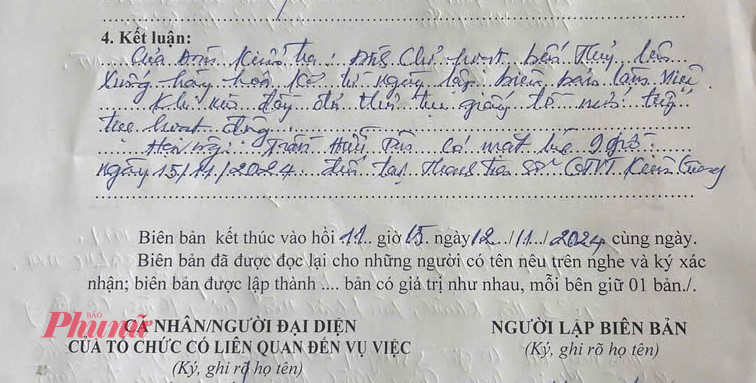 4. Kết luận:
Của Đoàn Kiểm tra: Đình Chỉ hoạt bến Thủy lên
Xuống hàng hóa Kể từ ngày lập biên bản làm việc.
Khi nào đầy đủ thủ tục giấy tờ mới tiếp
tục hoạt động
Hẹn ông: Trần Hữu có mặt lúc 9 giờ
ngày 15/11/2024 đến tại Thanh tra Sở GTVT Kiên Giang
Biên bản kết thúc vào hồi 11.. giờ 15. ngày 12../11../2024 cùng ngày.
Biên bản đã được đọc lại cho những người có tên nêu trên nghe và ký xác
nhận; biên bản được lập thành .... bản có giá trị như nhau, mỗi bên giữ 01 bản./.
BÁO
Phụ nữ
CÁ NHÂN/NGƯỜI ĐẠI DIỆN NGƯỜI LẬP BIÊN BẢN
CỦA TỔ CHỨC CÓ LIÊN QUAN ĐẾN VỤ VIỆC (Ký, ghi rõ họ tên)
(Ký, ghi rõ họ tên)